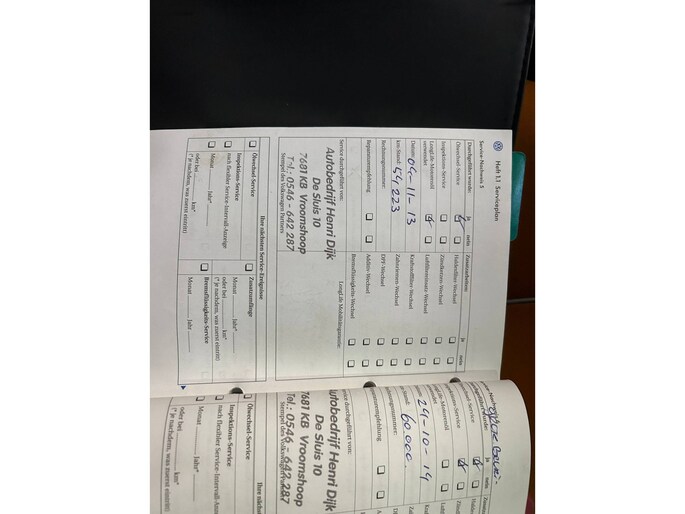 Heft 1.1 Serviceplan
Service-Nachweis 5
Durchgeführt wurde: ja nein
Ölwechsel-Service
Inspektions-Service
LongLife-Motorenöl
verwendet
Datum: 04-11-13
km-Stand: 54,223
Rechnungsnummer:
Reparaturempfehlung
Zusatzarbeiten: ja nein
Haldexfilter-Wechsel
Zündkerzen-Wechsel
Luftfiltereinsatz-Wechsel
Kraftstofffilter-Wechsel
Zahnriemen-Wechsel
DPF-Wechsel
Additiv-Wechsel
Bremsflüssigkeits-Wechsel
Service durchgeführt von:
LongLife Mobilitätsgarantie:
Autobedrijf Henri Dijk
De Sluis 10
7681 KB Vroomshoop
Tel.: 0546 - 642 287
Stempel des Volkswagen Partners
Ihre nächsten Service-Ereignisse
Ölwechsel-Service
Inspektions-Service
nach flexibler Service-Intervall-Anzeige
Monat Jahr*
oder bei km*
(* je nachdem, was zuerst eintritt)
Zusatzumfänge
Monat Jahr*
oder bei km*
(* je nachdem, was zuerst eintritt)
Bremsflüssigkeits-Service
Monat Jahr
ja
29-10-14
60000
Service durchgeführt von:
Autobedrijf Henri Dijk
De Sluis 10
7681 KB Vroomshoop
Tel.: 0546 - 642 287
Stempel des Volkswagen Partners
Ihre nächsten
Ölwechsel-Service
Inspektions-Service
nach flexibler Service-Intervall-An
Monat Jahr*
oder bei km*
(* je nachdem, was zuerst eintritt)